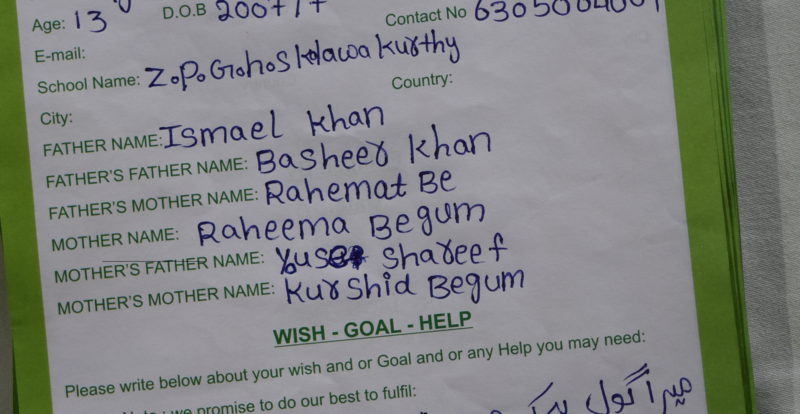 Age: 13 D.O.B Contact No
E-mail:
School Name: Z.P.G.H.S kalwakurthy
City: Country:
FATHER NAME: Ismael khan
FATHER'S FATHER NAME: Basheer khan
FATHER'S MOTHER NAME: Rahemat Be
MOTHER NAME: Raheema Begum
MOTHER'S FATHER NAME: Shareef
MOTHER'S MOTHER NAME: Kurshid Begum
WISH - GOAL - HELP
Please write below about your wish and or Goal and or any Help you may need:
we promise to do our best to fulfil:
میرا گول